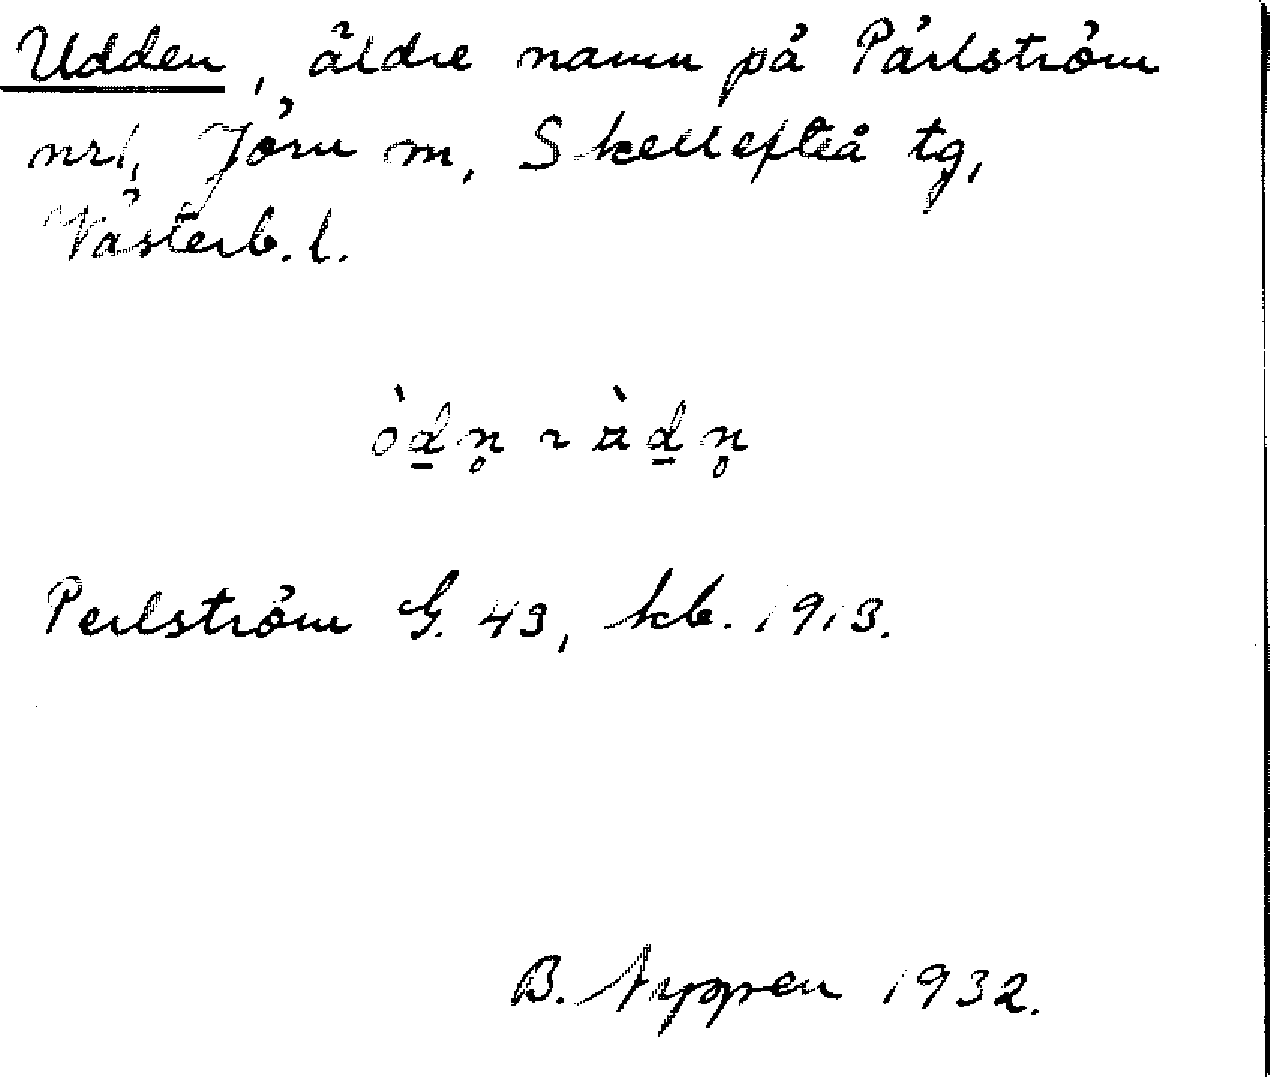 Udden, äldre namn på Pärlström
nr1, Jörn m, Skellefteå tg,
Västerb. l.
òd̲n̥ ~ ɑ̀d̲n̥
Perlström G. 43, kb. 1913.
B. Nyppen 1932.